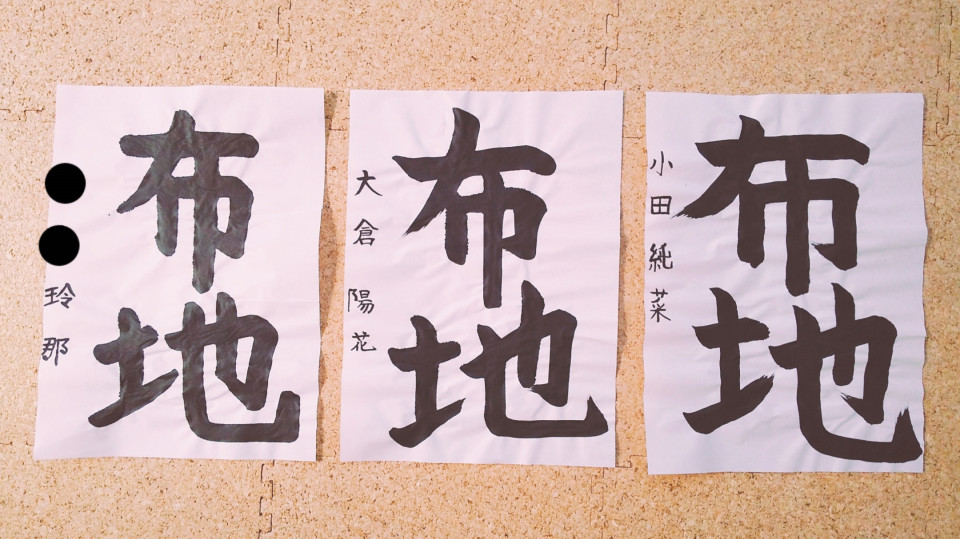 布地
玲那
布地
大倉 陽花
布地
小田純菜